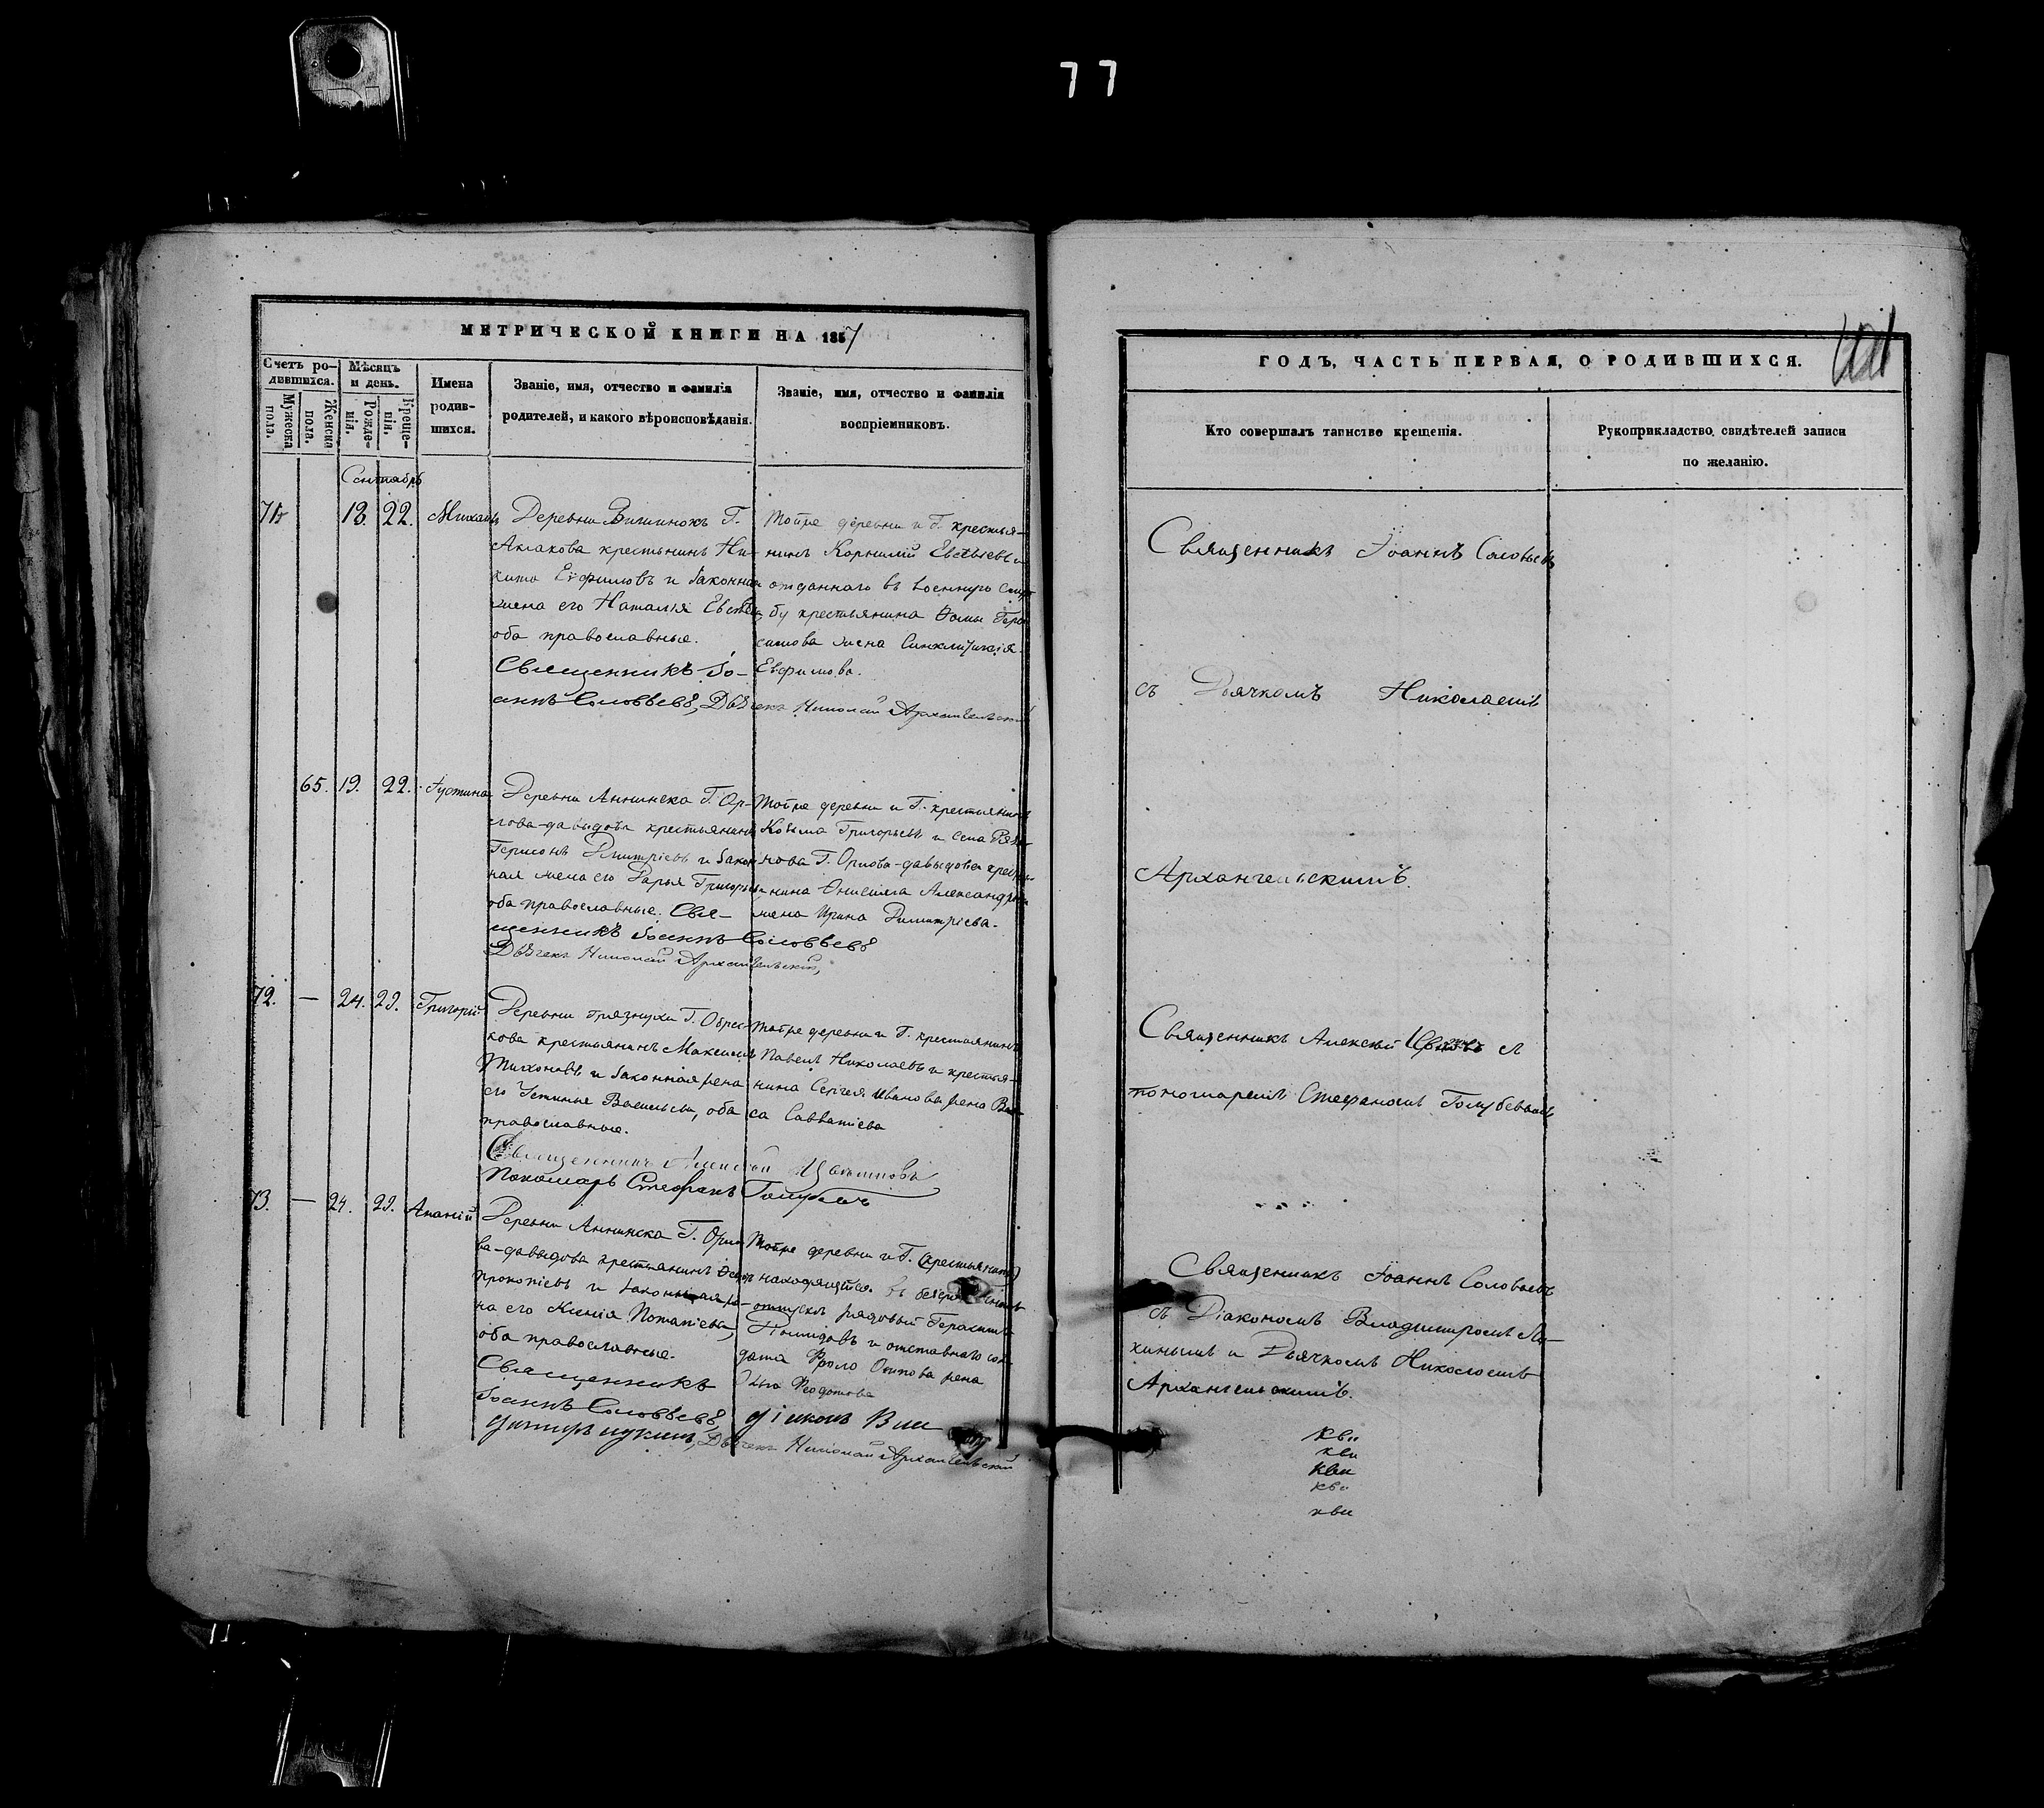 77
МЕТРИЧЕСКОЙ КНИГИ НА 1857
Счетъ ро-
дившихся.
Мѣсяцъ
и день.
Мужеска
пола.
Женска
пола.
Рожде-
нія.
Креще-
нія.
Имена
родив-
шихся.
Званіе, имя, отчество и фамилія
родителей, и какого вѣроисповѣданія.
Званіе, имя, отчество и фамилія
воспріемниковъ.
Сентябрь
71 18. 22. Михаилъ
Деревни Г.
Аклакова крестьянинъ Ни-
кита Евфимовъ и законная
жена его Наталія
оба православные.
Священникъ Іо-
аннъ Соловьевъ, Дьячекъ Николай Архангельскій
Тойже деревни и Г. крестья-
нинъ Корнилій и
отданнаго въ военную служ
бу крестьянина Фомы Гера
симова жена Синклитикія
Евфимова.
65. 19. 22. Іустина
Деревни Аннинска Г. Ор-
лова-давыдова крестьянинъ
Дмитріевъ и закон
ная жена его Дарья Григорьева
оба православные. Свя-
щенникъ Іоаннъ Соловьевъ
Дьячекъ Николай Архангельскій,
Тойже деревни и Г. крестьянинъ
Козьма Григорьевъ и села
нова Г. Орлова-давыдова кресть
нина Онисима Александро
жена Ирина Димитріева.
72. — 24. 29. Григорій
Деревни Грязнухи Г. Обрес
кова крестьянинъ Максимъ
Тихоновъ и законная жена
его Устинья Васильева, оба
православные.
Священникъ Алексей Цветковъ
Пономарь Стефанъ Голубевъ
Тойже деревни и Г. крестьянинъ
Павелъ Николаевъ и крестья-
нина Сергея Иванова жена Вас
са Савватіева
73. — 24. 29. Ананій
Деревни Аннинска Г. Орло
ва-давыдова крестьянинъ
Прокопіевъ и законная же-
на его Ксенія Потапіева,
оба православные.
Священникъ
Іоаннъ Соловьевъ, діаконъ Вла
димиръ Лукинъ, Дьячекъ Николай Архангельскій
Тойже деревни и Г. (крестьянинъ)
находящійся въ
отпуску рядовый Герасимъ
и отставнаго сол
дата Фрола жена
Федотова
ГОДЪ, ЧАСТЬ ПЕРВАЯ, О РОДИВШИХСЯ.
Кто совершалъ таинство крещенія.
Рукоприкладство свидѣтелей записи
по желанію.
Священникъ Іоаннъ Соловьевъ
съ Дьячкомъ Николаемъ
Архангельскимъ.
Священникъ Алексѣй Цвѣтковъ съ
пономаремъ Стефаномъ Голубевымъ
Священникъ Іоаннъ Соловьевъ
съ Діакономъ Владимиромъ Лу-
кинымъ и Дьячкомъ Николаемъ
Архангельскимъ.